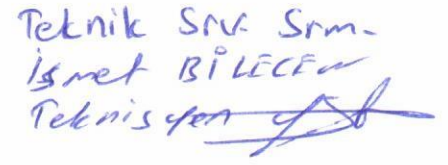 Teknik Srv. Srm.
İsmet BİLECEN
Teknisyen